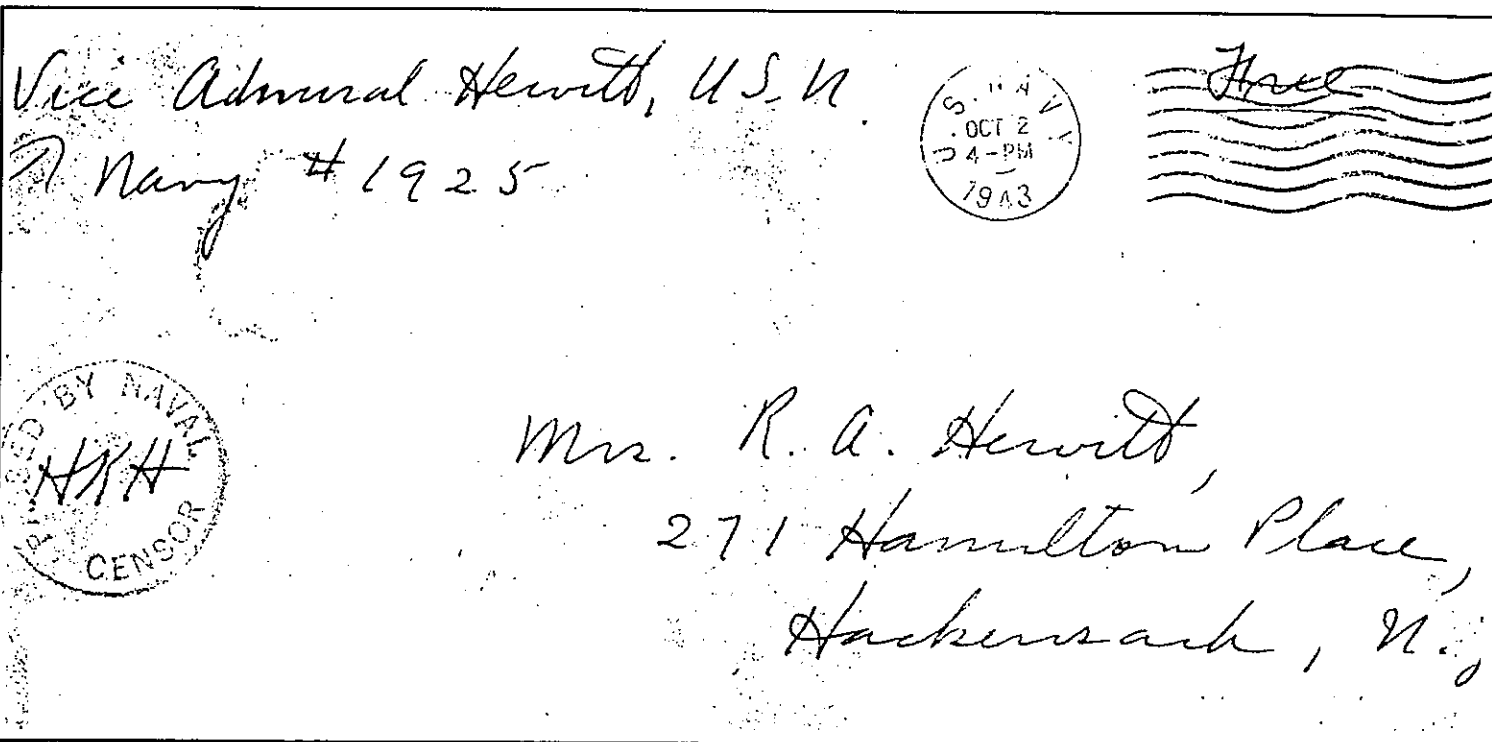 Vice Admiral Hewitt, U.S.N.
Navy #1925
U.S. NAVY
OCT 2
4-PM
1943
Free
PASSED BY NAVAL
HKH
CENSOR
Mrs. R. A. Hewitt,
271 Hamilton Place,
Hackensack, N.J